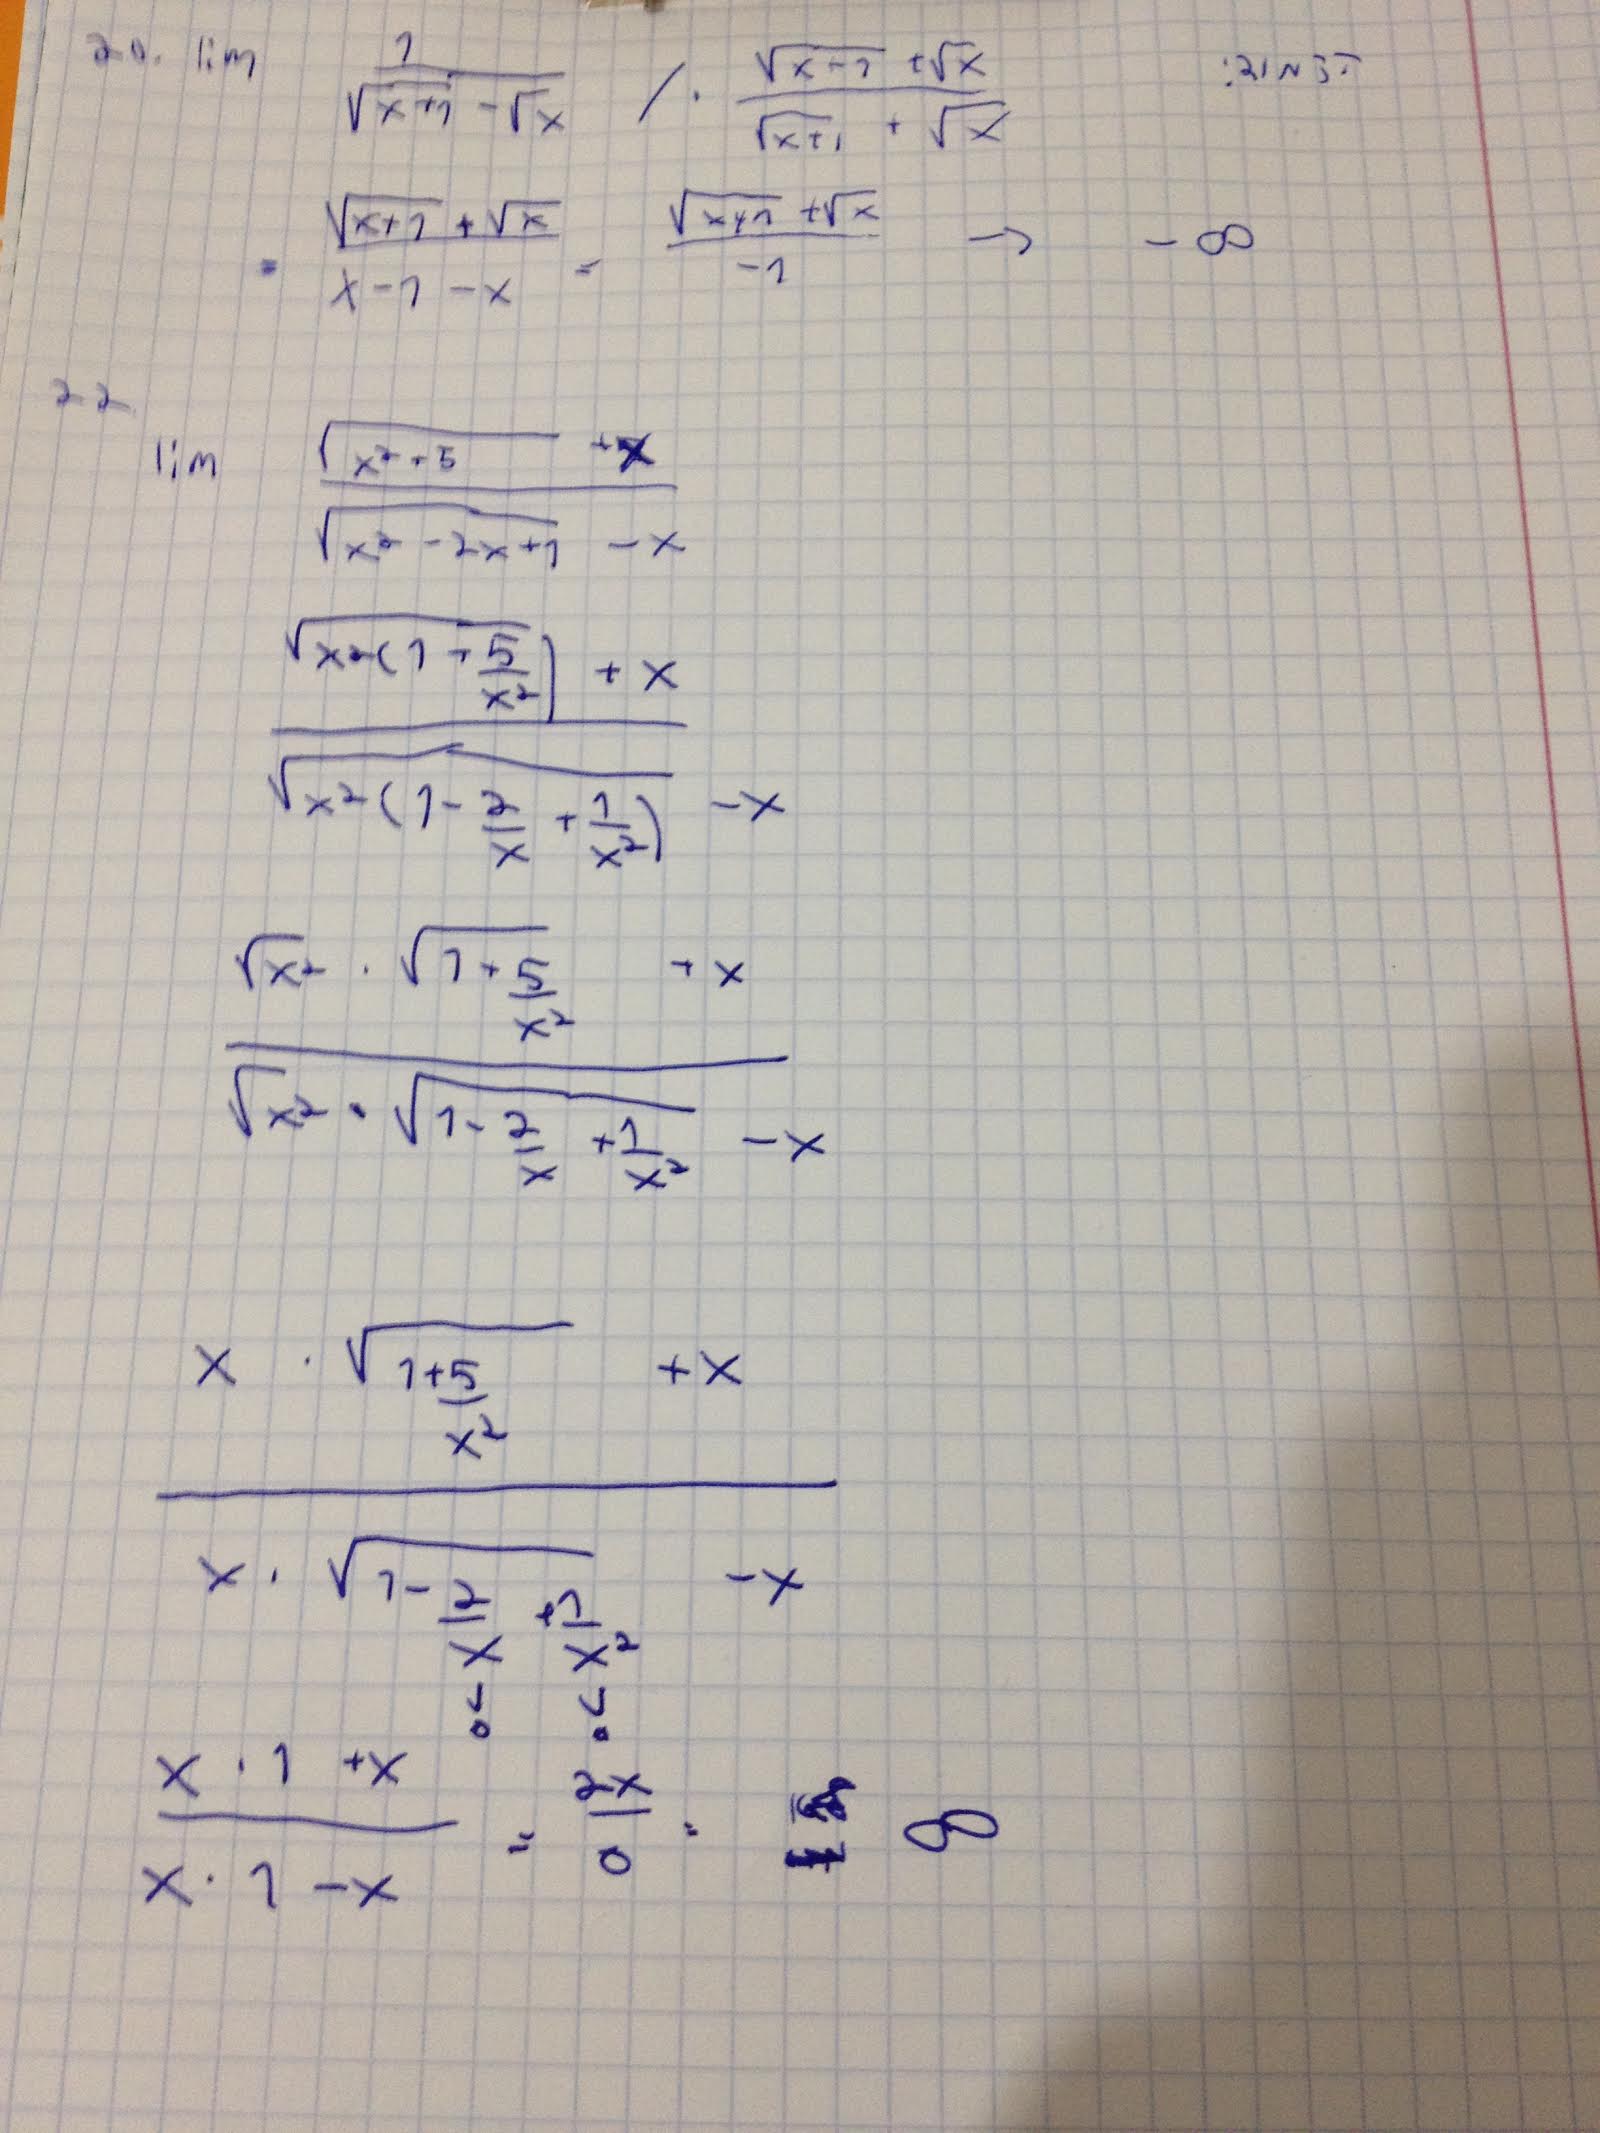 20. lim 1/(√(x+1) - √x) /· (√(x-1) + √x)/(√(x+1) + √x)
= (√(x+1) + √x)/(x-1-x) = (√(x+1) + √x)/(-1) → -∞
22
lim (√(x²+5) + x)/(√(x²-2x+1) - x)
(√(x²(1+5/x²)) + x)/(√(x²(1-2/x+1/x²)) - x)
(√x² · √(1+5/x²) + x)/(√x² · √(1-2/x+1/x²) - x)
(x · √(1+5/x²) + x)/(x · √(1-2/x+1/x²) - x)
↓ ↓
0 0
(x·1+x)/(x·1-x) = 2x/0 = ∞